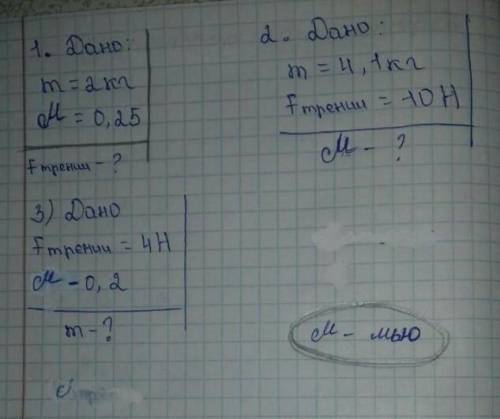 1. Дано:
m = 2кг
μ = 0,25
Fтрении - ?
2. Дано:
m = 4,1кг
Fтрении = 10 Н
μ - ?
3) Дано
Fтрении = 4Н
μ - 0,2
m - ?
μ - мью